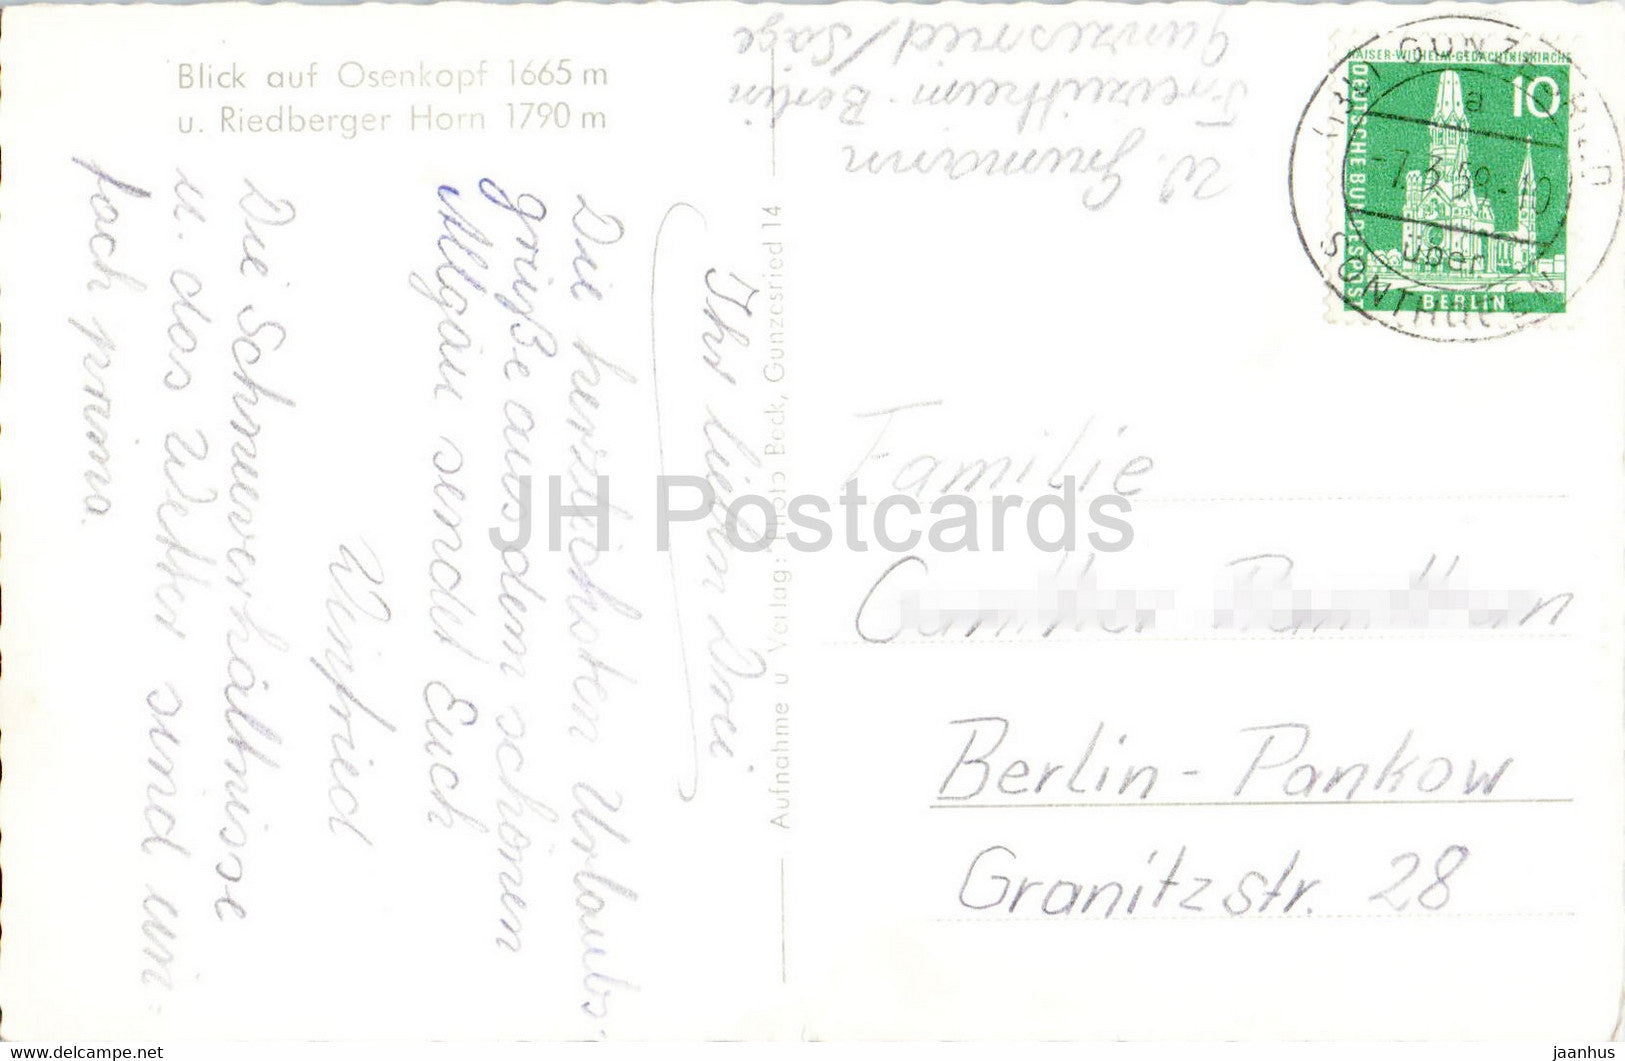 Blick auf Osenkopf 1665 m
u. Riedberger Horn 1790 m
W. Grumann
Freizeitheim - Berlin
Gunzesried/Säge
KAISER-WILHELM-GEDÄCHTNISKIRCHE
10
DEUTSCHE BUNDESPOST
BERLIN
a
-7.3.59-10
über
SONTHOFEN
Ihr lieben Drei
Die herzlichsten Urlaubs-
grüße aus dem schönen
Allgäu sendet Euch
Winfried
Die Schneeverhältnisse
u. das Wetter sind ein-
fach prima.
Aufnahme u. Verlag: Photo Beck, Gunzesried 14
Familie
Berlin - Pankow
Granitzstr. 28
JH Postcards
www.delcampe.net
jaanhus